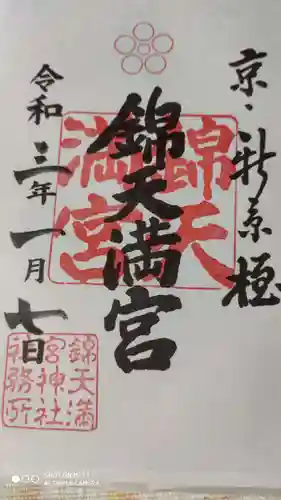 京・新京極
錦天満宮
令和三年一月七日
錦天
満宮
錦天満
宮神社
神務所